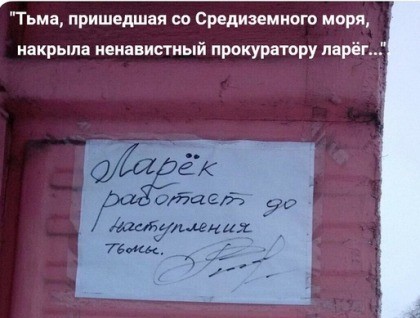 "Тьма, пришедшая со Средиземного моря,
накрыла ненавистный прокуратору ларёг..."
Ларёк
работает до
наступления
тьмы.